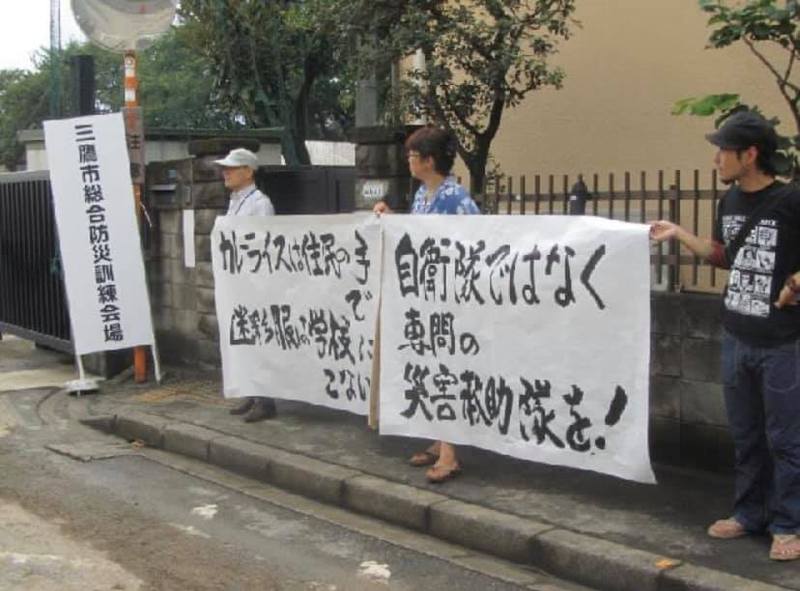 三鷹市総合防災訓練会場
カレーライスは住民の手
で
迷彩服は学校に
こない
自衛隊ではなく
専問の
災害救助隊を!